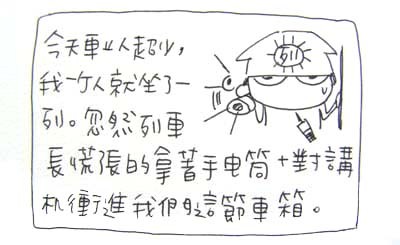 今天車上人超少,
我一个人就坐了一
列。忽然列車
長慌張的拿著手电筒+對講
机衝進我們這節車箱。
列